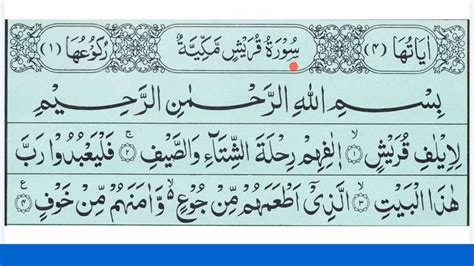 اٰيَاتُهَا (٤) سُوْرَةُ قُرَيْشٍ مَكِّيَّةٌ رُكُوْعُهَا (١)
بِسْمِ اللهِ الرَّحْمٰنِ الرَّحِيْمِ
لِاِيْلٰفِ قُرَيْشٍ ۙ﴿١﴾ اٖلٰفِهِمْ رِحْلَةَ الشِّتَآءِ وَالصَّيْفِ ۚ﴿٢﴾ فَلْيَعْبُدُوْا رَبَّ
هٰذَا الْبَيْتِ ۙ﴿٣﴾ الَّذِيْٓ اَطْعَمَهُمْ مِّنْ جُوْعٍ ۙ وَّاٰمَنَهُمْ مِّنْ خَوْفٍ ﴿٤﴾